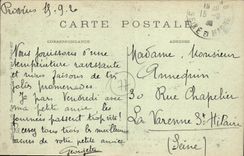 Provins 15.9.20
CARTE POSTALE
CORRESPONDANCE
ADRESSE
Nous jouissons d'une
température ravissante
et nous faisons de très
jolies promenades.
Je pars Vendredi
jours passent trop vite!
Recevez tous les meilleurs
de votre petite amie
Madame, Monsieur
30 Rue Chapelier
La Varenne St Hilaire
(Seine)